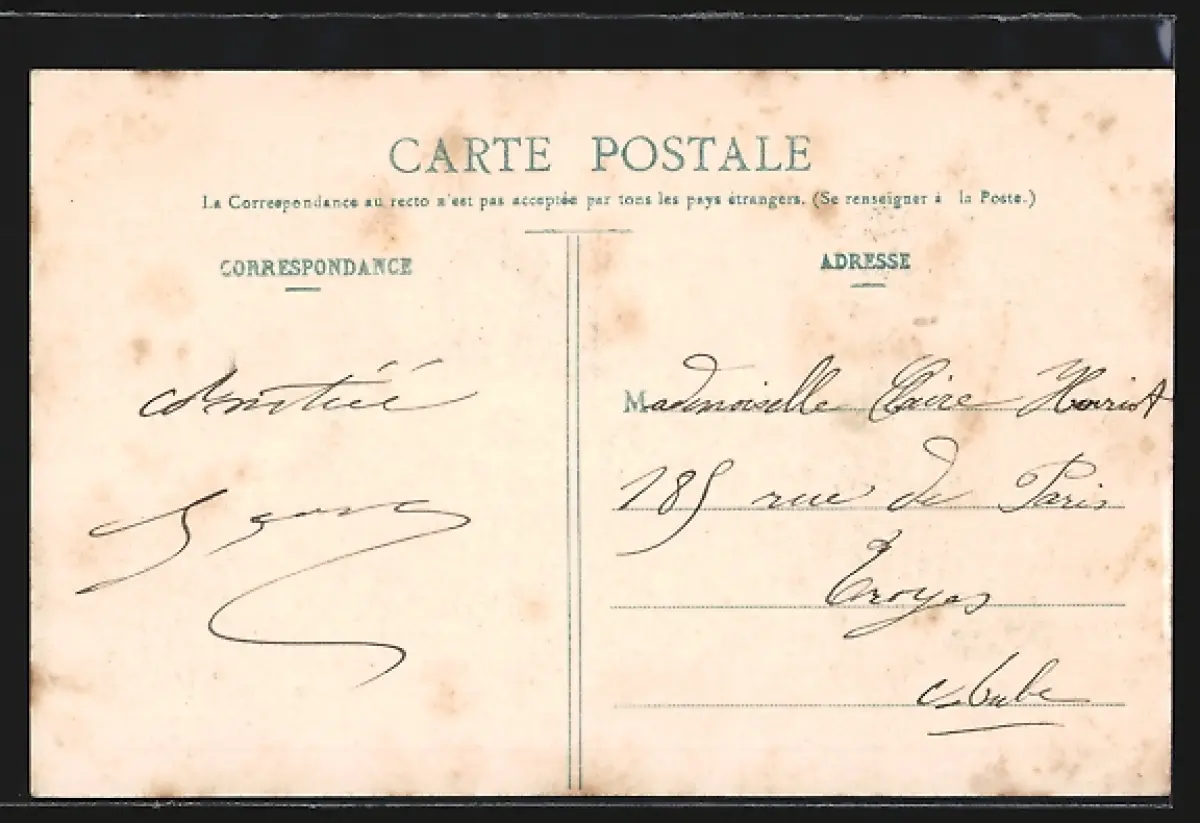 CARTE POSTALE
La Correspondance au recto n'est pas acceptée par tous les pays étrangers. (Se renseigner à la Poste.)
CORRESPONDANCE
ADRESSE
Amitiée
Mademoiselle Claire Henriot
185 rue de Paris
Troyes
Aube